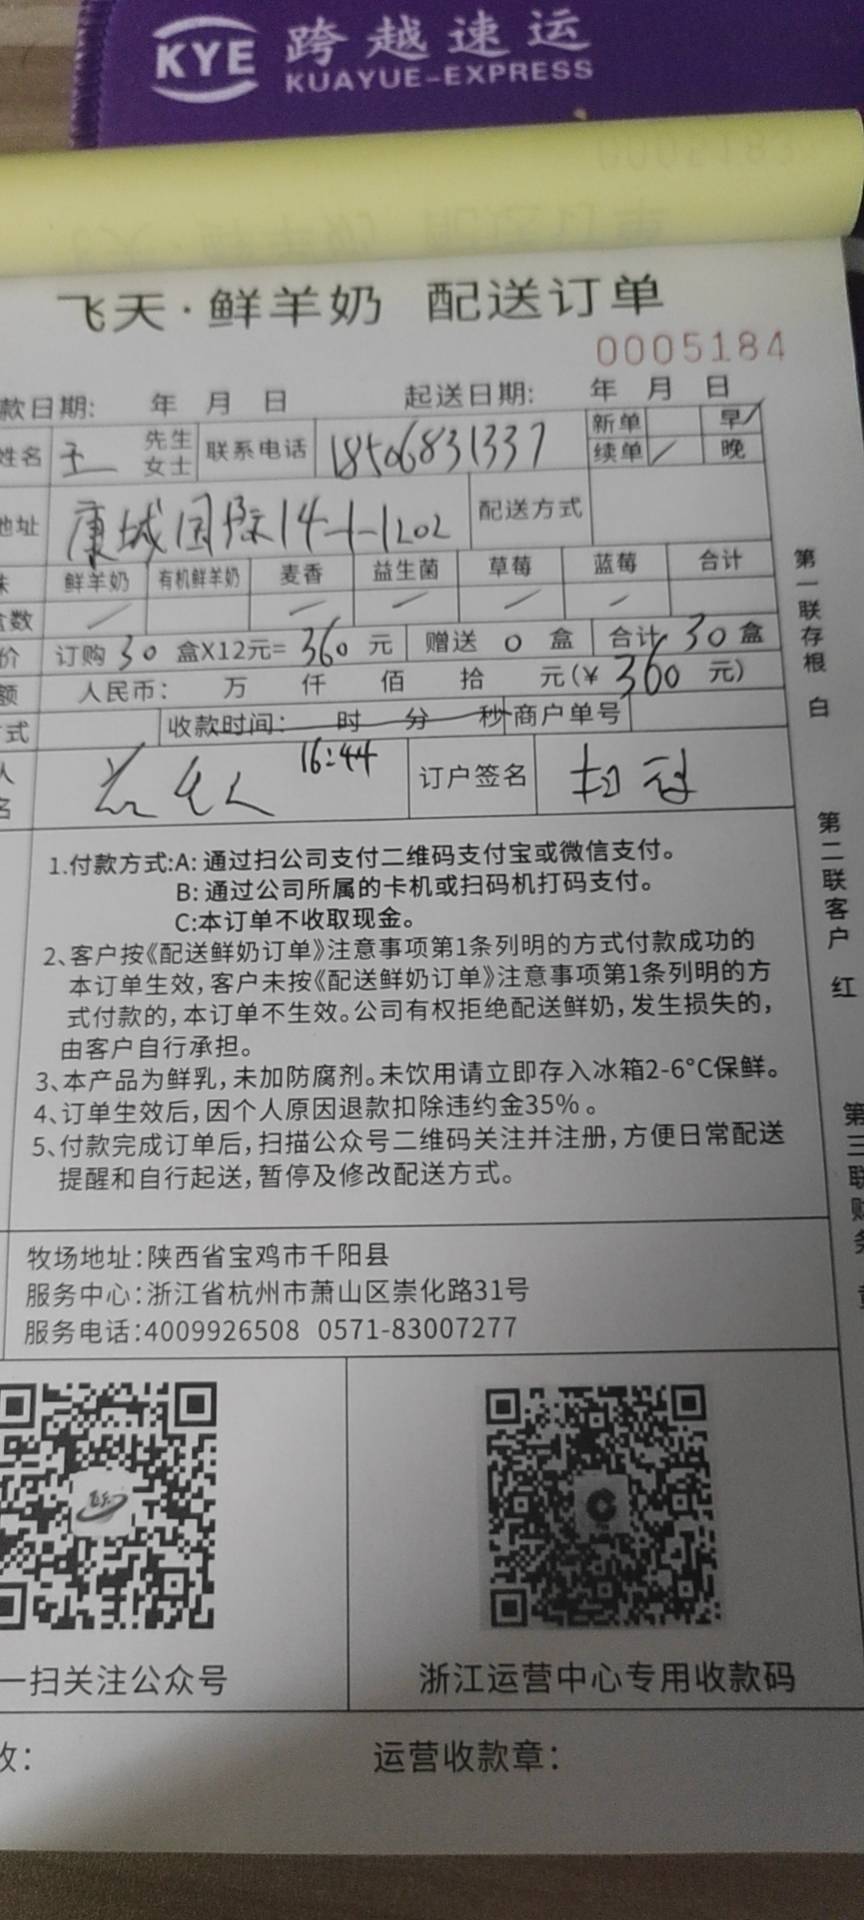 KYE 跨越速运
KUAYUE-EXPRESS
飞天·鲜羊奶 配送订单
0005184
款日期: 年 月 日 起送日期: 年 月 日
姓名 王 先生 女士 联系电话 18506831337 新单 早/
续单 / 晚
地址 康城国际14-1-1202 配送方式
味 鲜羊奶 有机鲜羊奶 麦香 益生菌 草莓 蓝莓 合计
盒数 / / / / /
价 订购 30 盒X12元= 360 元 赠送 0 盒 合计 30 盒
额 人民币: 万 仟 佰 拾 元(¥ 360 元)
方式 收款时间: 时 分 秒 商户单号
16:44
人名 订户签名
1.付款方式:A: 通过扫公司支付二维码支付宝或微信支付。
B: 通过公司所属的卡机或扫码机打码支付。
C:本订单不收取现金。
2、客户按《配送鲜奶订单》注意事项第1条列明的方式付款成功的
本订单生效,客户未按《配送鲜奶订单》注意事项第1条列明的方
式付款的,本订单不生效。公司有权拒绝配送鲜奶,发生损失的,
由客户自行承担。
3、本产品为鲜乳,未加防腐剂。未饮用请立即存入冰箱2-6°C保鲜。
4、订单生效后,因个人原因退款扣除违约金35%。
5、付款完成订单后,扫描公众号二维码关注并注册,方便日常配送
提醒和自行起送,暂停及修改配送方式。
牧场地址:陕西省宝鸡市千阳县
服务中心:浙江省杭州市萧山区崇化路31号
服务电话:4009926508 0571-83007277
一扫关注公众号 浙江运营中心专用收款码
收: 运营收款章:
第一联存根 白
第二联客户 红
第三联财务